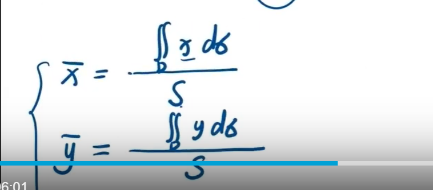 x̄ = ∬_D x dσ / S
ȳ = ∬_D y dσ / S
6:01